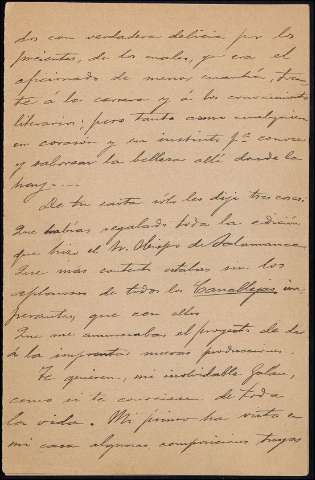 dos con verdadera delicia por los
presentes, de los cuales, yo era el
aficionado de menor cuantía,
á la carrera y á los conocimientos
literarios; pero tanto como cualquiera
en corazón y en instinto pª conocer
y saborear la belleza allí donde la
hay....
De tu carta sólo les dije tres cosas:
Que habías regalado toda la edición
que hizo el Sr. Obispo de Salamanca
Que más contento estabas con los
aplausos de todos los
que con ellos
Que me anunciabas el proyecto de dar
á la imprenta nuevas producciones.
Te quieren, mi inolvidable Galán,
como si te conociesen de toda
la vida. Mi primo ha visto en
mi casa algunas composiciones tuyas